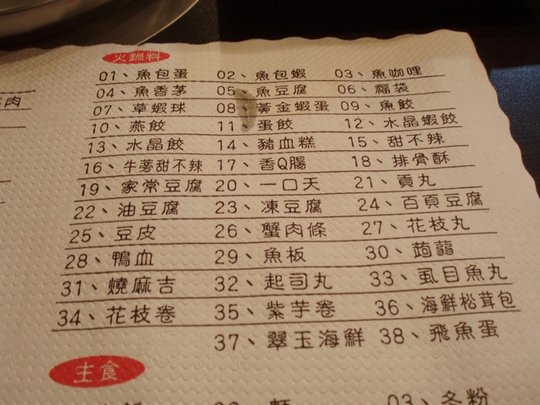 火鍋料
01、魚包蛋 02、魚包蝦 03、魚咖哩
04、魚香茅 05、魚豆腐 06、福袋
07、草蝦球 08、黃金蝦蛋 09、魚餃
10、燕餃 11、蛋餃 12、水晶蝦餃
13、水晶餃 14、豬血糕 15、甜不辣
16、牛蒡甜不辣 17、香Q腸 18、排骨酥
19、家常豆腐 20、一口天 21、貢丸
22、油豆腐 23、凍豆腐 24、百頁豆腐
25、豆皮 26、蟹肉條 27、花枝丸
28、鴨血 29、魚板 30、蒟蒻
31、燒麻吉 32、起司丸 33、虱目魚丸
34、花枝卷 35、紫芋卷 36、海鮮松茸包
37、翠玉海鮮 38、飛魚蛋
主食
03、冬粉